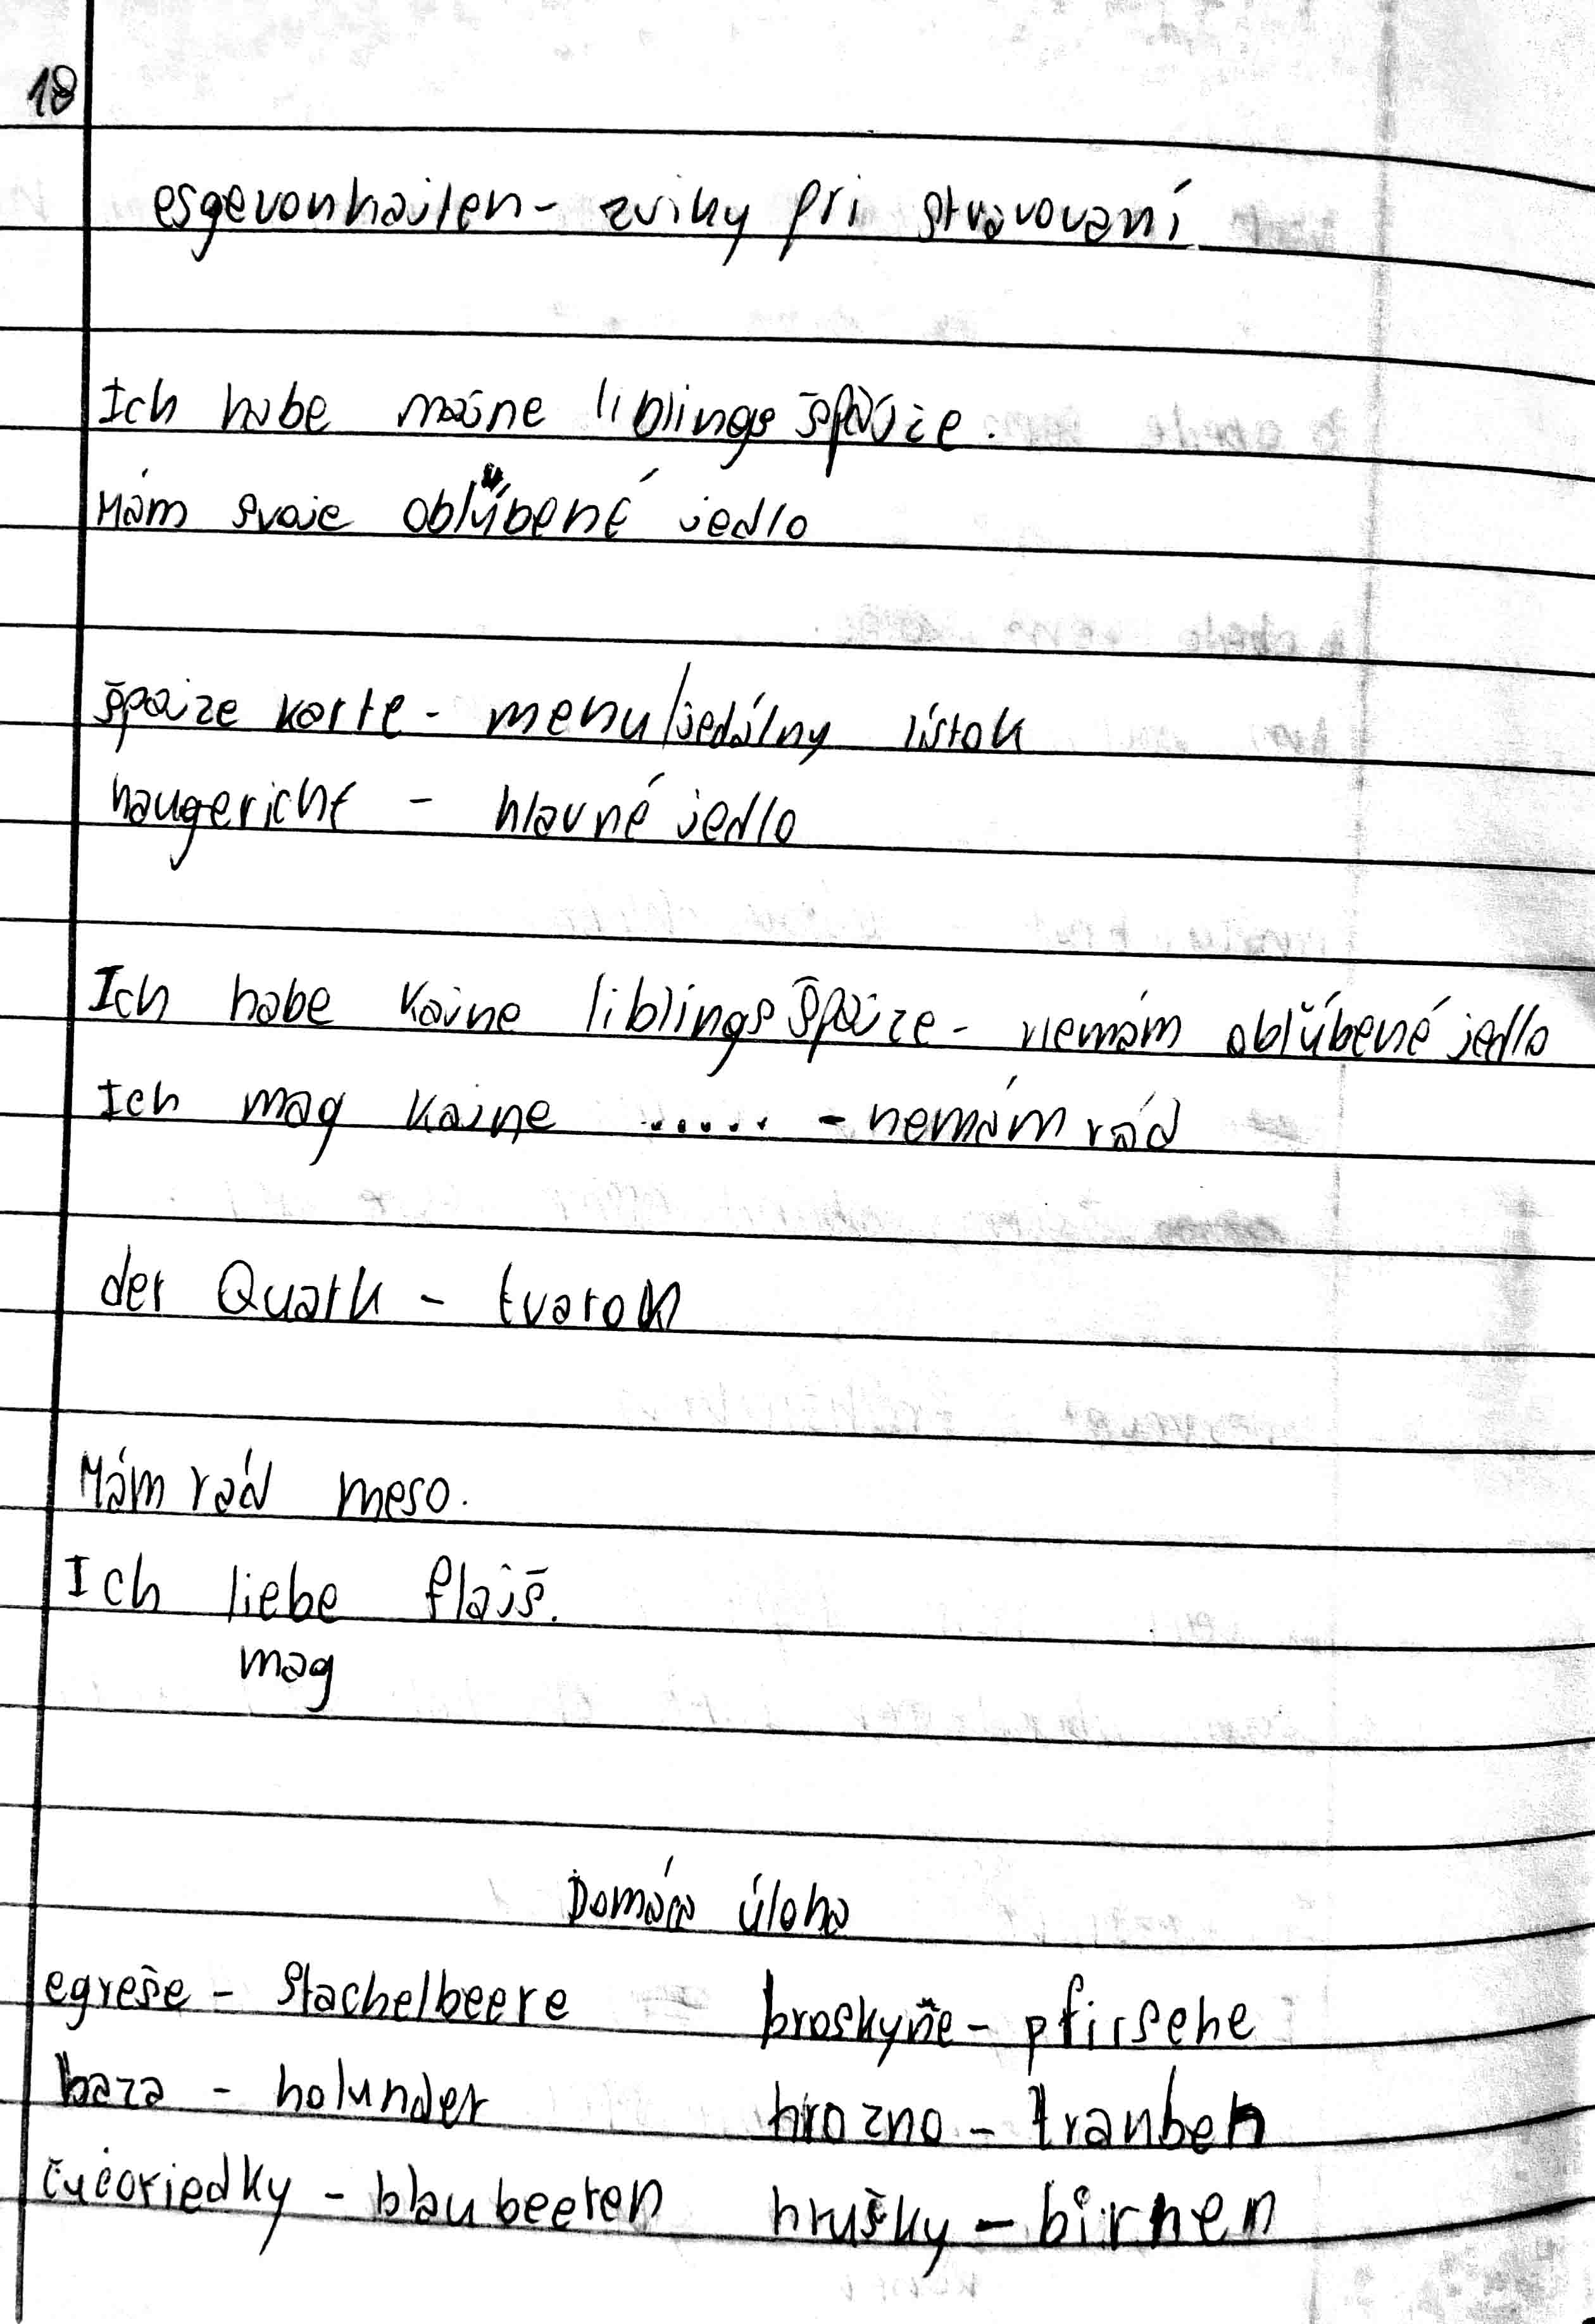 18
esgevonhajten - zviky pri stravovaní
Ich habe majne liblings špajze.
Mám svoje obľúbené jedlo
špajze karte - menu/jedálny lístok
haugericht - hlavné jedlo
Ich habe kajne liblings špajze - nemám obľúbené jedlo
Ich mag kajne ...... - nemám rád
der Quark - tvaroh
Mám rád meso.
Ich liebe flajš.
mag
Domáca úloha
egreše - Stachelbeere
baza - holunder
čučoriedky - blaubeeren
broskyňe - pfirsche
hrozno - trauben
hrušky - birnen